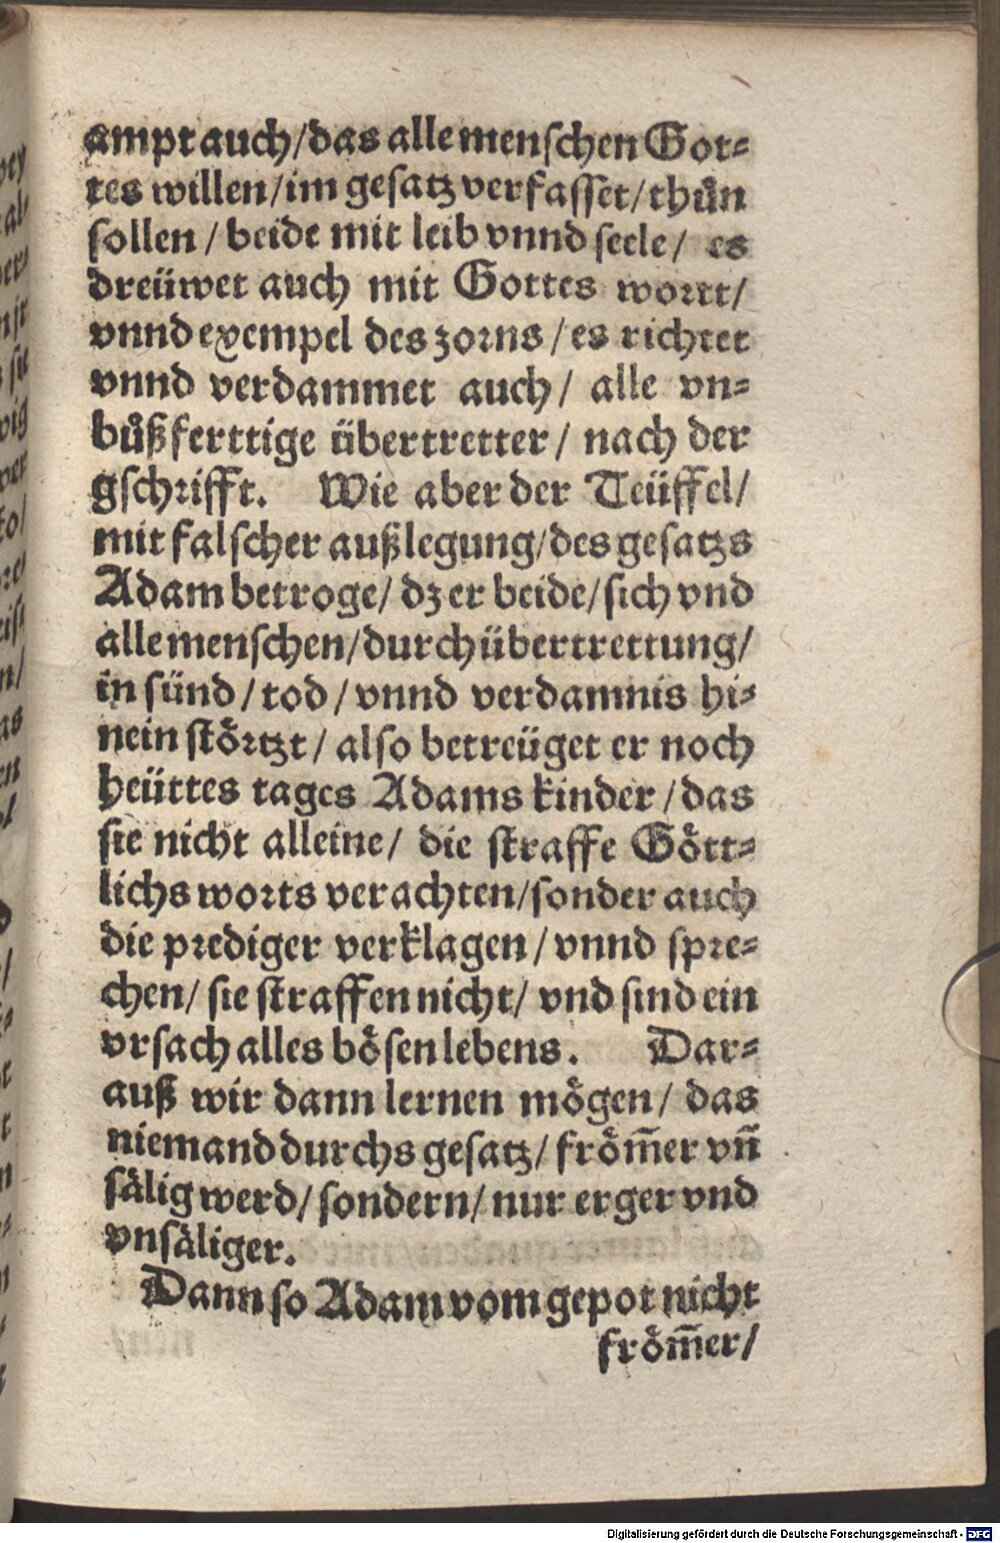 ampt auch/das alle menschen Got⸗
tes willen/im gesatz verfasset/thůn
sollen / beide mit leib vnnd seele/ es
dreüwet auch mit Gottes wortt/
vnnd exempel des zorns / es richtet
vnnd verdammet auch/ alle vn⸗
bůßferttige übertretter/ nach der
gschrifft. Wie aber der Teüffel/
mit falscher außlegung/des gesatzs
Adam betroge/ dz er beide/sich vnd
alle menschen/durch übertrettung/
in sünd/tod/vnnd verdamnis hi⸗
nein stoͤrtzt/ also betreüget er noch
heüttes tages Adams kinder/das
sie nicht alleine/ die straffe Goͤtt⸗
lichs worts verachten/sonder auch
die prediger verklagen/vnnd spre⸗
chen/ sie straffen nicht/ vnd sind ein
vrsach alles boͤsen lebens. Dar⸗
auß wir dann lernen moͤgen/ das
niemand durchs gesatz/froͤm̃er vñ
saͤlig werd/sondern/nur erger vnd
vnsaͤliger.
Dann so Adam vom gepot nicht
froͤm̃er/
Digitalisierung gefördert durch die Deutsche Forschungsgemeinschaft - DFG